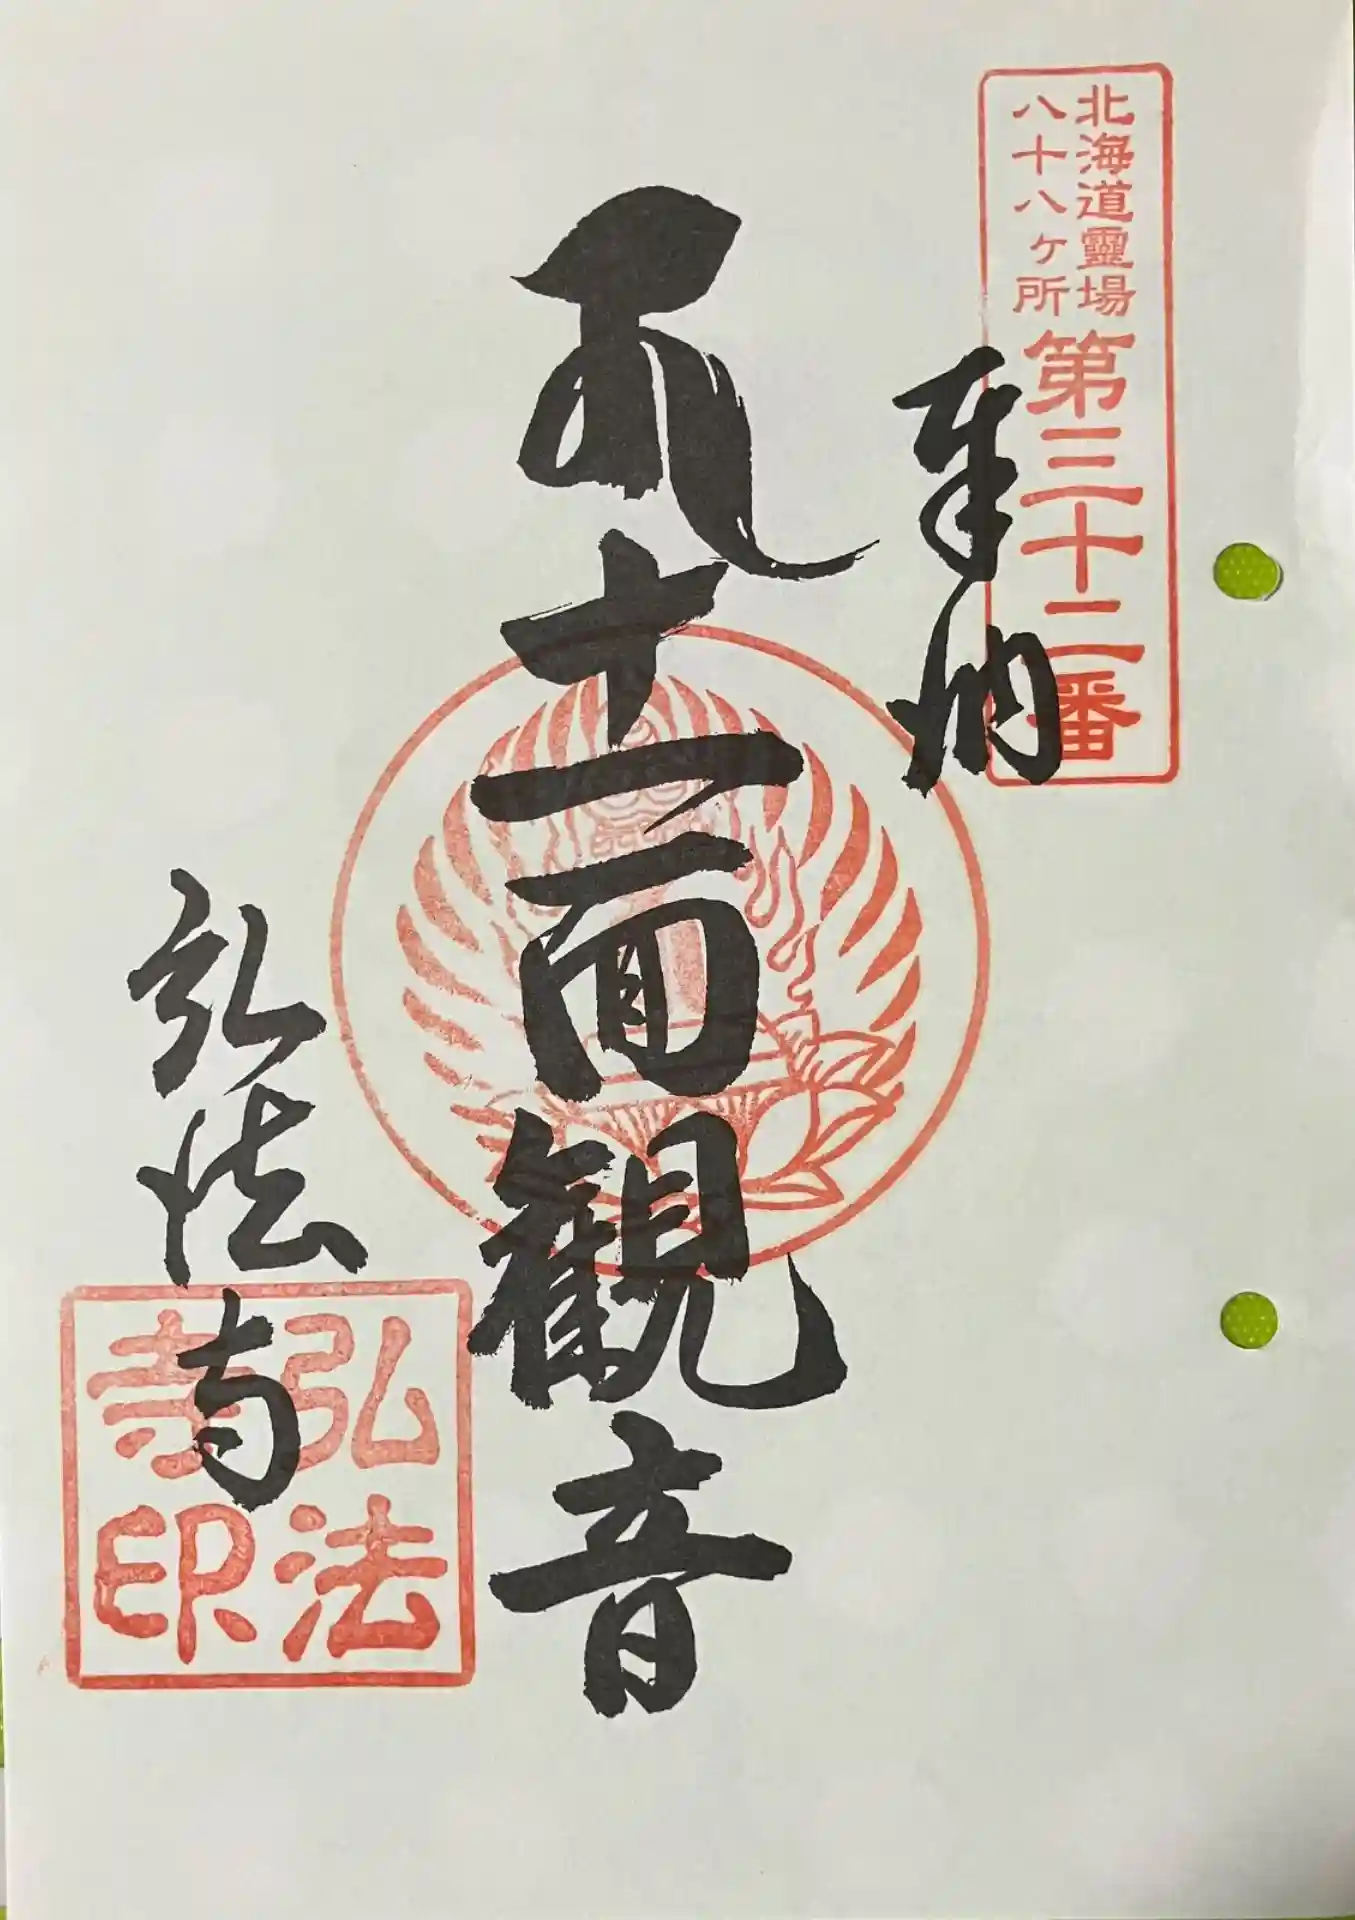 北海道靈場
八十八ケ所
第三十二番
奉納
十一面観音
弘法寺
弘法
寺印